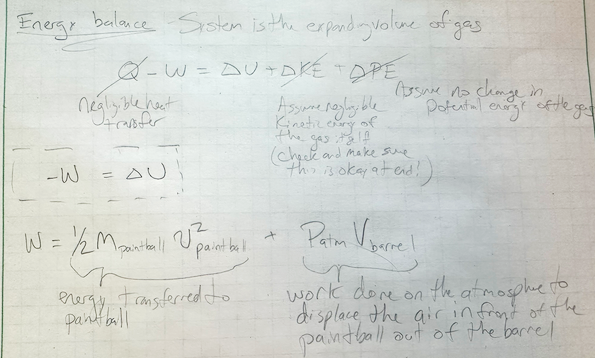 Energy balance - System is the expanding volume of gas
Q - W = ΔU + ΔKE + ΔPE
negligible heat
transfer
Assume negligible
Kinetic energy of
the gas itself
(check and make sure
this is okay at end!)
Assume no change in
Potential energy of the gas
-W = ΔU
W = 1/2 m paintball v² paintball + Patm V barrel
energy transferred to
paintball
work done on the atmosphere to
displace the air in front of the
paintball out of the barrel